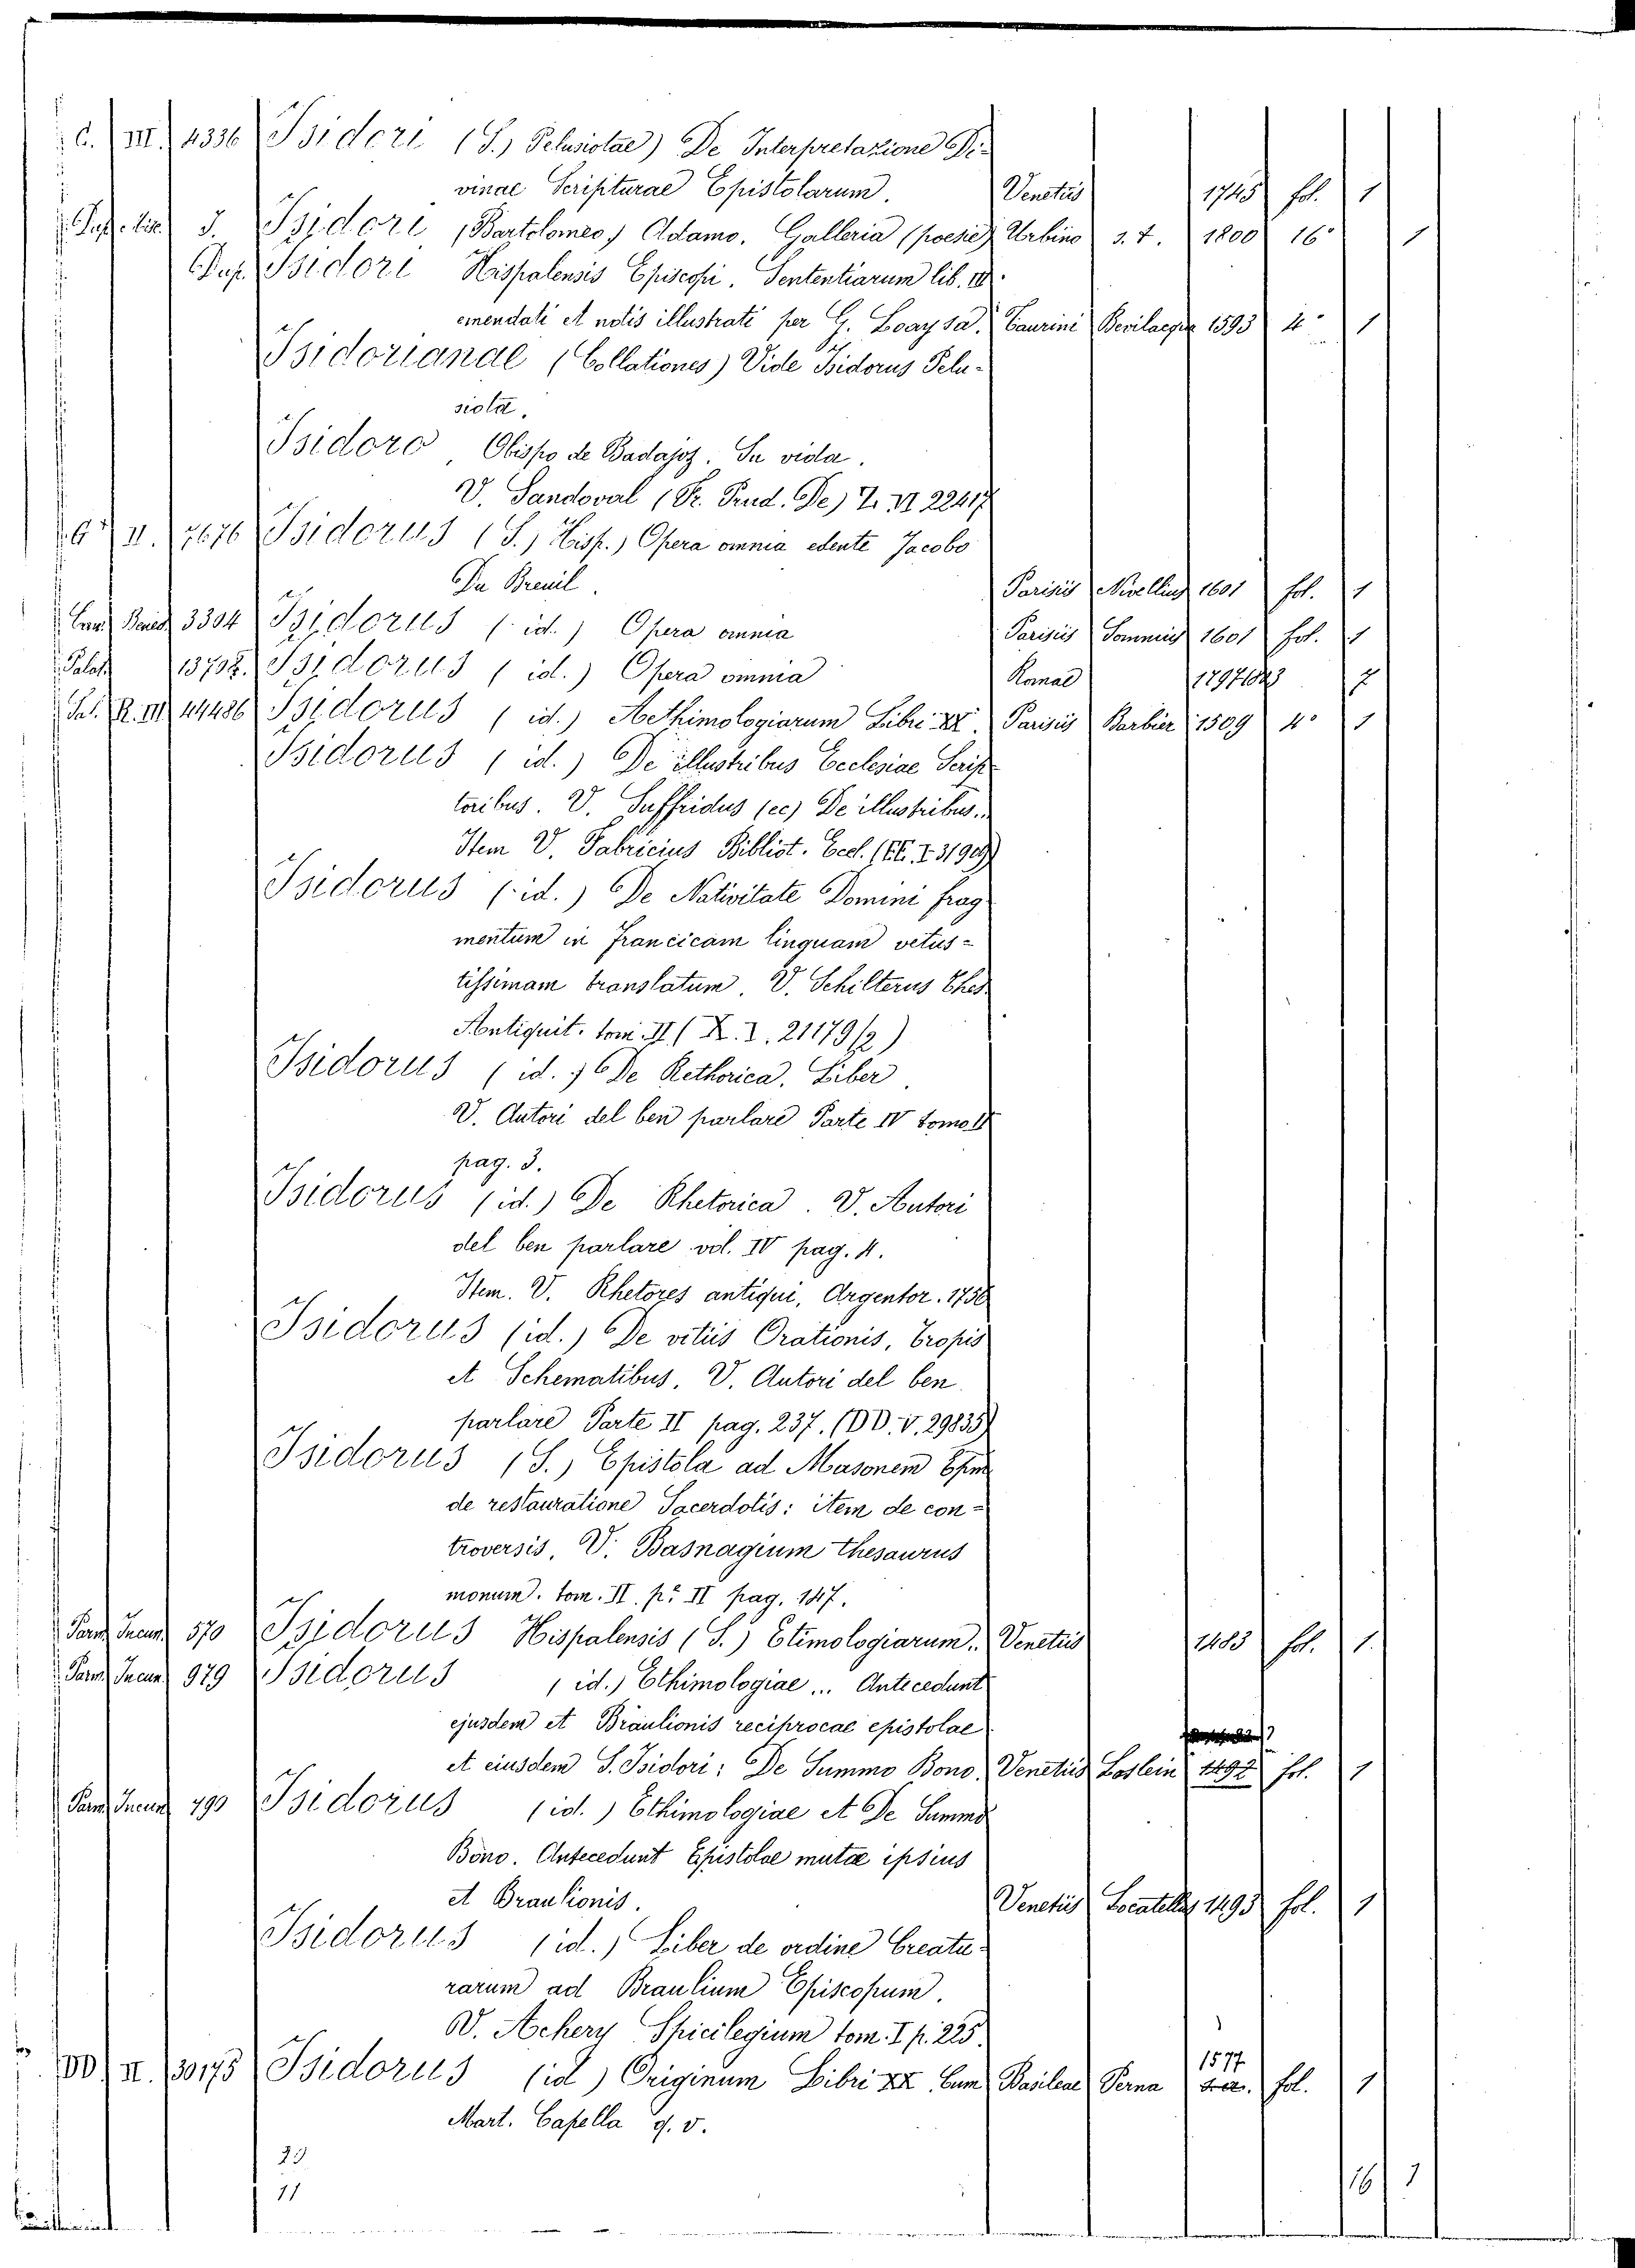 C. III. 4336 Isidori (S.) Pelusiotae) De Interpretazione Di-
vinae Scripturae Epistolarum. Venetiis 1745 fol. 1
J. Isidori (Bartolomeo) Adamo. Galleria (poesie) Urbino s. t. 1800 16° 1
Dup. Isidori Hispalensis Episcopi. Sententiarum lib. III
emendati et notis illustrati per G. Loaysa. Taurini Bevilacqua 1593 4° 1
Isidorianae (Collationes) Vide Isidorus Pelu-
siota.
Isidoro, Obispo de Badajoz. Su vida.
V. Sandoval (Fr. Prud. De) Z. VI 22417
G II. 7676 Isidorus (S.) Hisp.) Opera omnia edente Jacobo
Du Breuil. Parisiis Nivellius 1601 fol. 1
Bened 3304 Isidorus (id.) Opera omnia Parisiis Sonnius 1601 fol. 1
Palat 13792. Isidorus (id.) Opera omnia Romae 1797 1803 7
Sal. R. III 44486 Isidorus (id.) Aethimologiarum Libri XX. Parisiis Barbier 1509 4° 1
Isidorus (id.) De illustribus Ecclesiae Scrip-
toribus. V. Suffridus (ec) De illustribus..
Item V. Fabricius Bibliot. Eccl. (EE. I. 31909)
Isidorus (id.) De Nativitate Domini frag
mentum in Francicam linguam vetus-
tissimam translatum. V. Schilterus Thes.
Antiquit. tom. II. (X. I. 21179/2)
Isidorus (id.) De Rethorica. Liber.
V. Autori del ben parlare Parte IV tomo II
pag. 3.
Isidorus (id.) De Rhetorica. V. Autori
del ben parlare vol. IV pag. 4.
Item. V. Rhetores antiqui, Argentor. 1756
Isidorus (id.) De vitiis Orationis, Tropis
et Schematibus. V. Autori del ben
parlare Parte II pag. 237. (DD. V. 29835)
Isidorus (S.) Epistola ad Masonem Epm
de restauratione Sacerdotis: item de con-
troversis, V. Basnagium thesaurus
monum. tom. II. p. II pag. 147.
Parm Incun 570 Isidorus Hispalensis (S.) Etimologiarum.. Venetiis 1483 fol. 1.
Parm Incun 979 Isidorus (id.) Ethimologiae... Antecedunt
ejusdem et Braulionis reciprocae epistolae
et eiusdem S. Isidori: De Summo Bono. Venetiis Loslein 1492 fol. 1
Parm Incun 490 Isidorus (id.) Ethimologiae et De Summo
Bono. Antecedunt Epistolae mutae ipsius
et Braulionis. Venetiis Locatellus 1493 fol. 1
Isidorus (id.) Liber de ordine Creatu-
rarum ad Braulium Episcopum.
V. Achery Spicilegium tom. I p. 225.
DD II. 30175 Isidorus (id) Originum Libri XX. Cum Basileae Perna 1577 fol. 1
Mart. Capella q. v.
29
11
16 1